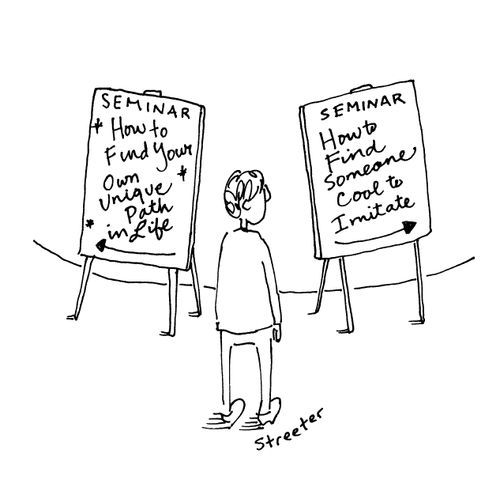 SEMINAR
* How to
Find Your
Own *
Unique
Path
* in Life
SEMINAR
How to
Find
Someone
Cool to
Imitate
Streeter